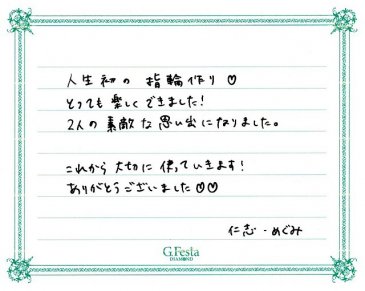 人生初の指輪作り♡
とっても楽しくできました!
2人の素敵な思い出になりました。
これから大切に使っていきます!
ありがとうございました♡♡
仁志・めぐみ
G.Festa
DIAMOND